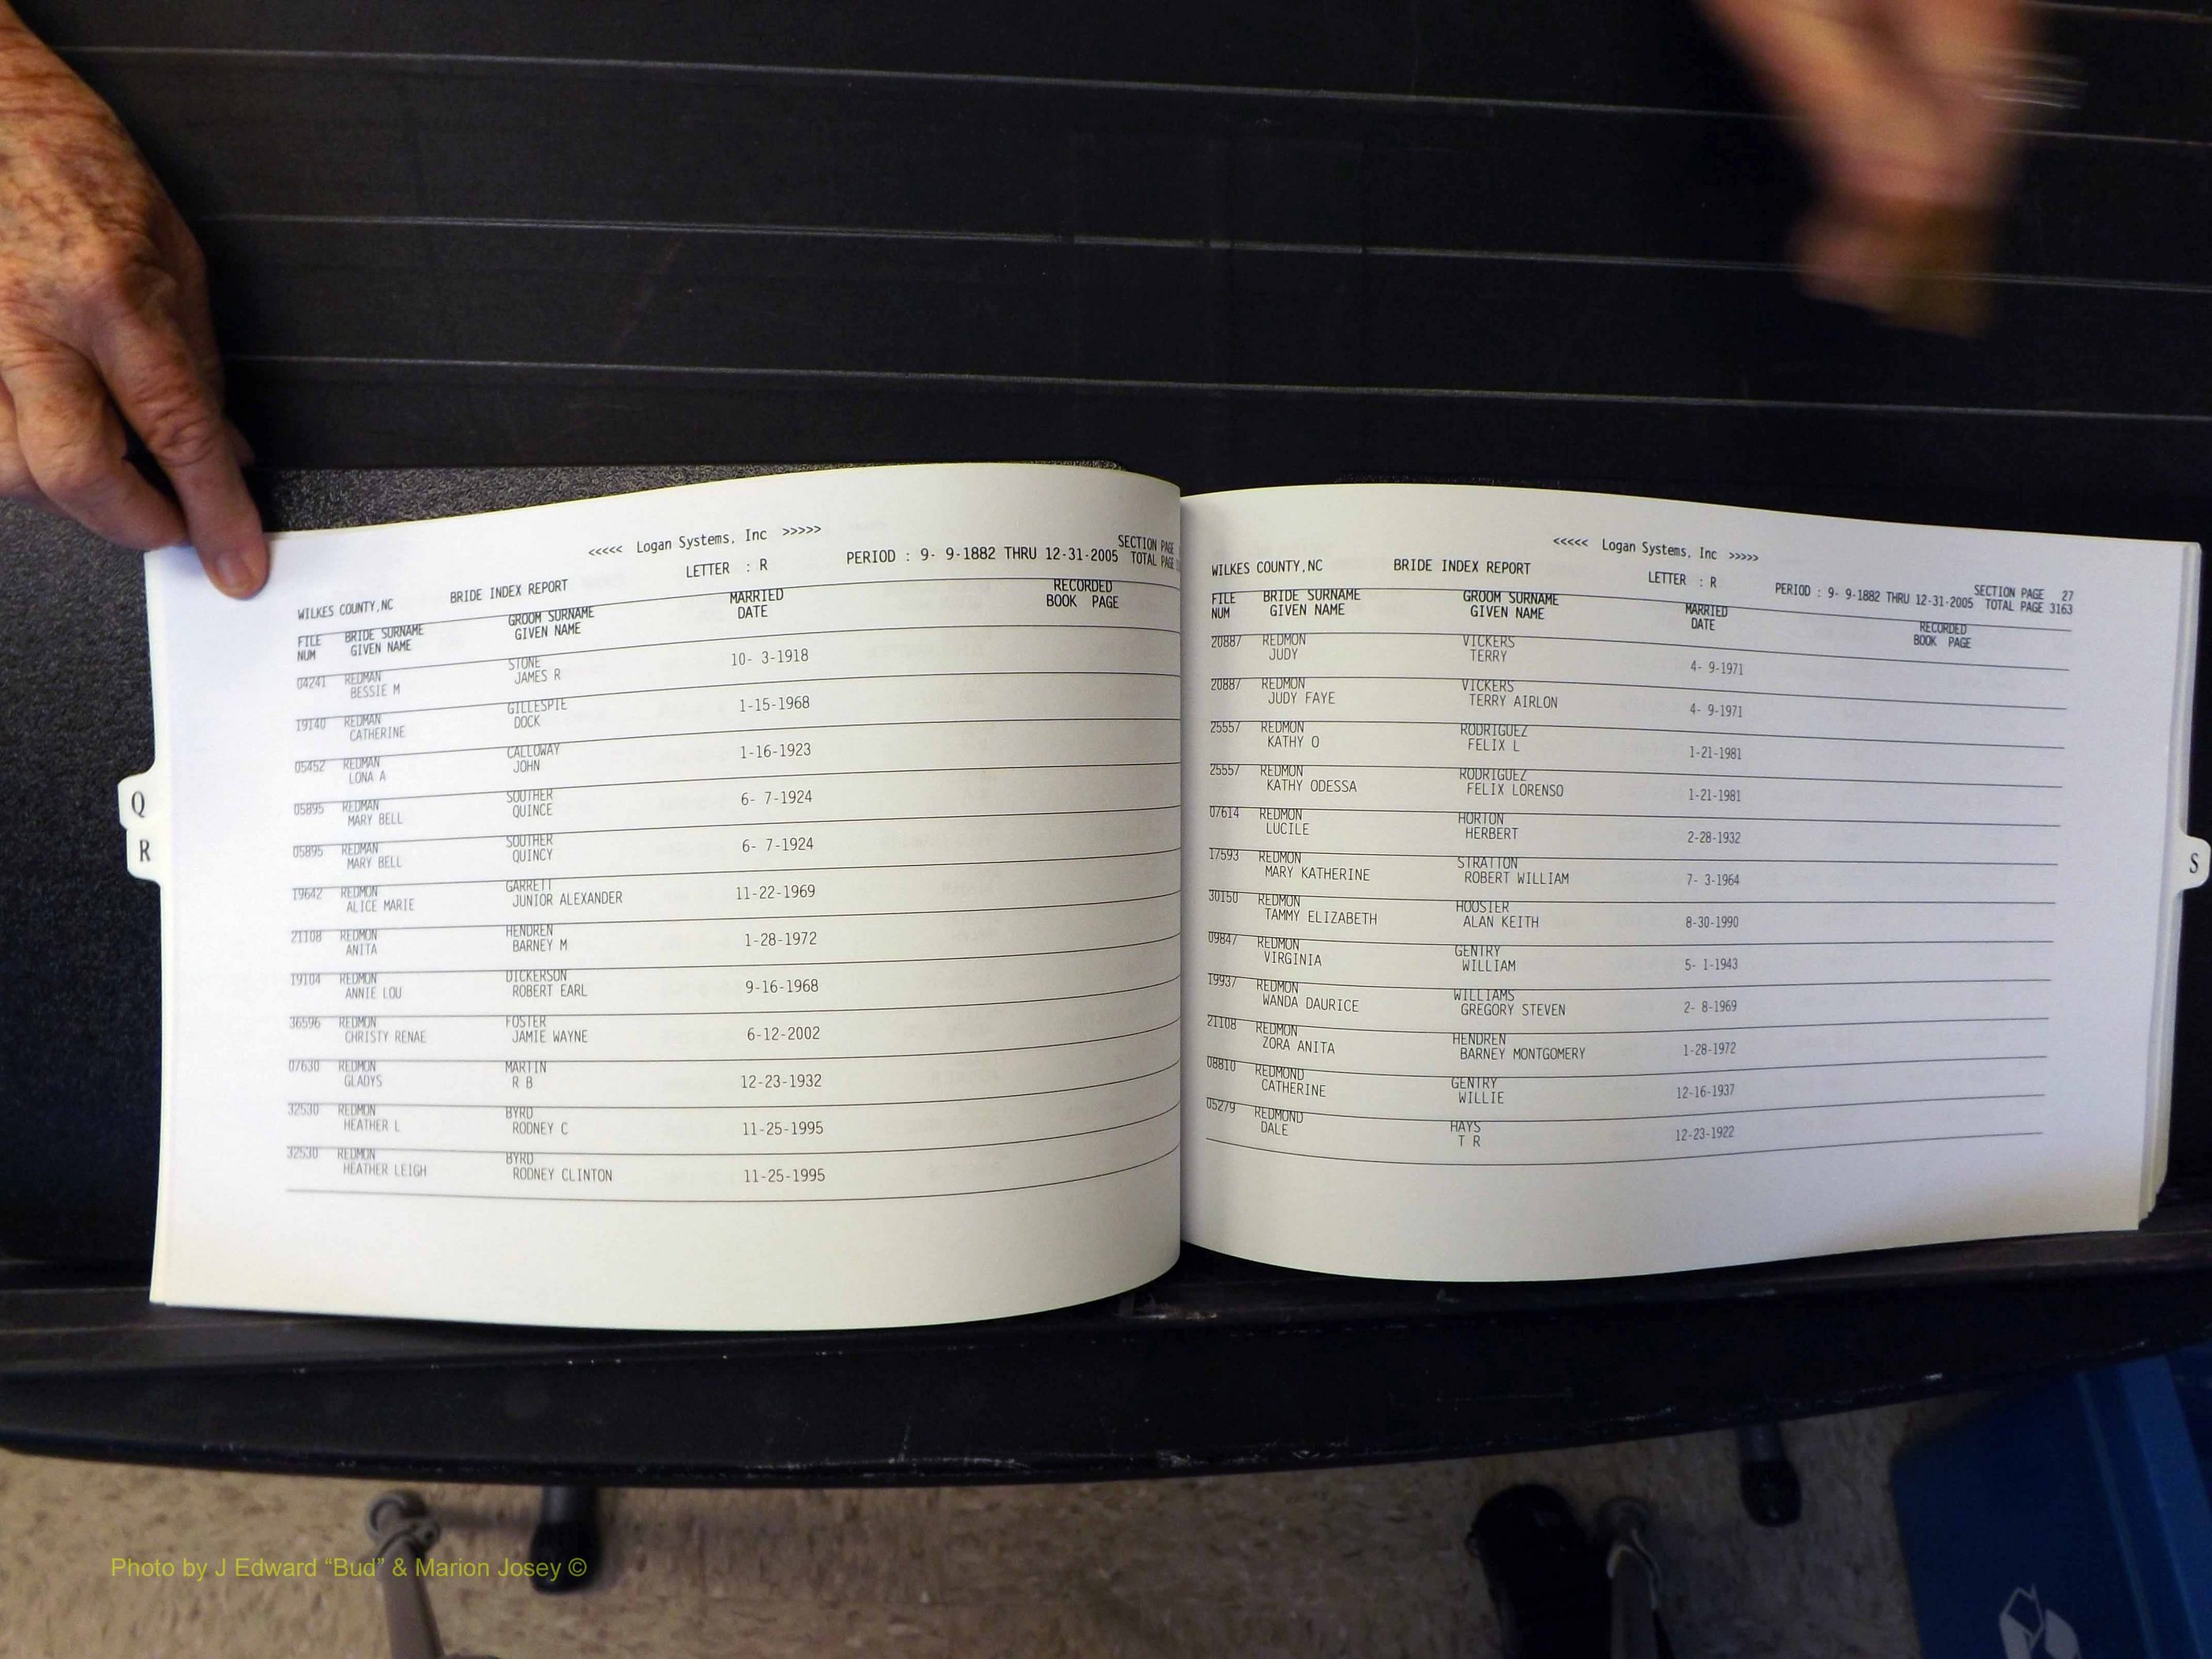 <<<<< Logan Systems, Inc >>>>>
SECTION PAGE
WILKES COUNTY,NC BRIDE INDEX REPORT LETTER : R PERIOD : 9- 9-1882 THRU 12-31-2005 TOTAL PAGE
FILE BRIDE SURNAME GROOM SURNAME MARRIED RECORDED
NUM GIVEN NAME GIVEN NAME DATE BOOK PAGE
04241 REDMAN STONE 10- 3-1918
BESSIE M JAMES R
19140 REDMAN GILLESPIE 1-15-1968
CATHERINE DOCK
05452 REDMAN CALLOWAY 1-16-1923
LONA A JOHN
05895 REDMAN SOUTHER 6- 7-1924
MARY BELL QUINCE
05895 REDMAN SOUTHER 6- 7-1924
MARY BELL QUINCY
19642 REDMON GARRETT 11-22-1969
ALICE MARIE JUNIOR ALEXANDER
21108 REDMON HENDREN 1-28-1972
ANITA BARNEY M
19104 REDMON DICKERSON 9-16-1968
ANNIE LOU ROBERT EARL
36596 REDMON FOSTER 6-12-2002
CHRISTY RENAE JAMIE WAYNE
07630 REDMON MARTIN 12-23-1932
GLADYS R B
32530 REDMON BYRD 11-25-1995
HEATHER L RODNEY C
32530 REDMON BYRD 11-25-1995
HEATHER LEIGH RODNEY CLINTON
Q
R
<<<<< Logan Systems, Inc >>>>>
SECTION PAGE 27
WILKES COUNTY,NC BRIDE INDEX REPORT LETTER : R PERIOD : 9- 9-1882 THRU 12-31-2005 TOTAL PAGE 3163
FILE BRIDE SURNAME GROOM SURNAME MARRIED RECORDED
NUM GIVEN NAME GIVEN NAME DATE BOOK PAGE
20887 REDMON VICKERS 4- 9-1971
JUDY TERRY
20887 REDMON VICKERS 4- 9-1971
JUDY FAYE TERRY AIRLON
25557 REDMON RODRIGUEZ 1-21-1981
KATHY O FELIX L
25557 REDMON RODRIGUEZ 1-21-1981
KATHY ODESSA FELIX LORENSO
07614 REDMON HORTON 2-28-1932
LUCILE HERBERT
17593 REDMON STRATTON 7- 3-1964
MARY KATHERINE ROBERT WILLIAM
30150 REDMON HOOSIER 8-30-1990
TAMMY ELIZABETH ALAN KEITH
09847 REDMON GENTRY 5- 1-1943
VIRGINIA WILLIAM
19937 REDMON WILLIAMS 2- 8-1969
WANDA DAURICE GREGORY STEVEN
21108 REDMON HENDREN 1-28-1972
ZORA ANITA BARNEY MONTGOMERY
08810 REDMOND GENTRY 12-16-1937
CATHERINE WILLIE
05279 REDMOND HAYS 12-23-1922
DALE T R
S
Photo by J Edward “Bud” & Marion Josey ©